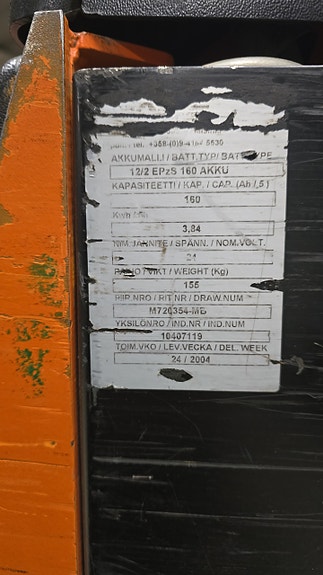 +358-(0)9-4167 5630
AKKUMALLI / BATT.TYP/ BATT.TYPE
12/2 EPzS 160 AKKU
KAPASITEETTI / KAP. / CAP. (Ah/5)
160
Kwh
3,84
NIM.JÄNNITE / SPÄNN. / NOM.VOLT.
24
PAINO / VIKT / WEIGHT (Kg)
155
PIIR.NRO / RIT NR / DRAW.NUM
M720354-MB
YKSILÖNRO / IND.NR / IND.NUM
10407119
TOIM.VKO / LEV.VECKA / DEL. WEEK
24 / 2004